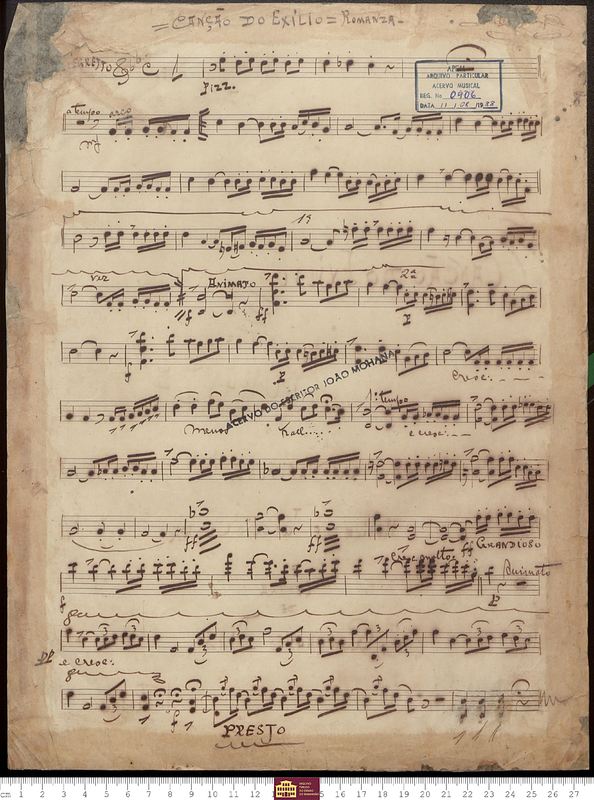 = CANÇÃO DO EXÍLIO = ROMANZA -
pizz.
APEM
ARQUIVO PARTICULAR
ACERVO MUSICAL
REG. No 0906
DATA 11 / 08 /
a tempo arco
mf
13
vez
ANIMATO
2ª
ff
P
f
P
Cresc:
ACERVO DO ESCRITOR JOÃO MOHANA
Menos
Rall.....
a: tempo
e cresc:
ff
ff
Cresc molto: ff GRANDIOSO
Animato
f
P
8va
e cresc:
f
PRESTO
cm 1 2 3 4 5 6 7 8 9 10 11 12 15 16 17 18 19 20 21 22 23 24 25 26 27